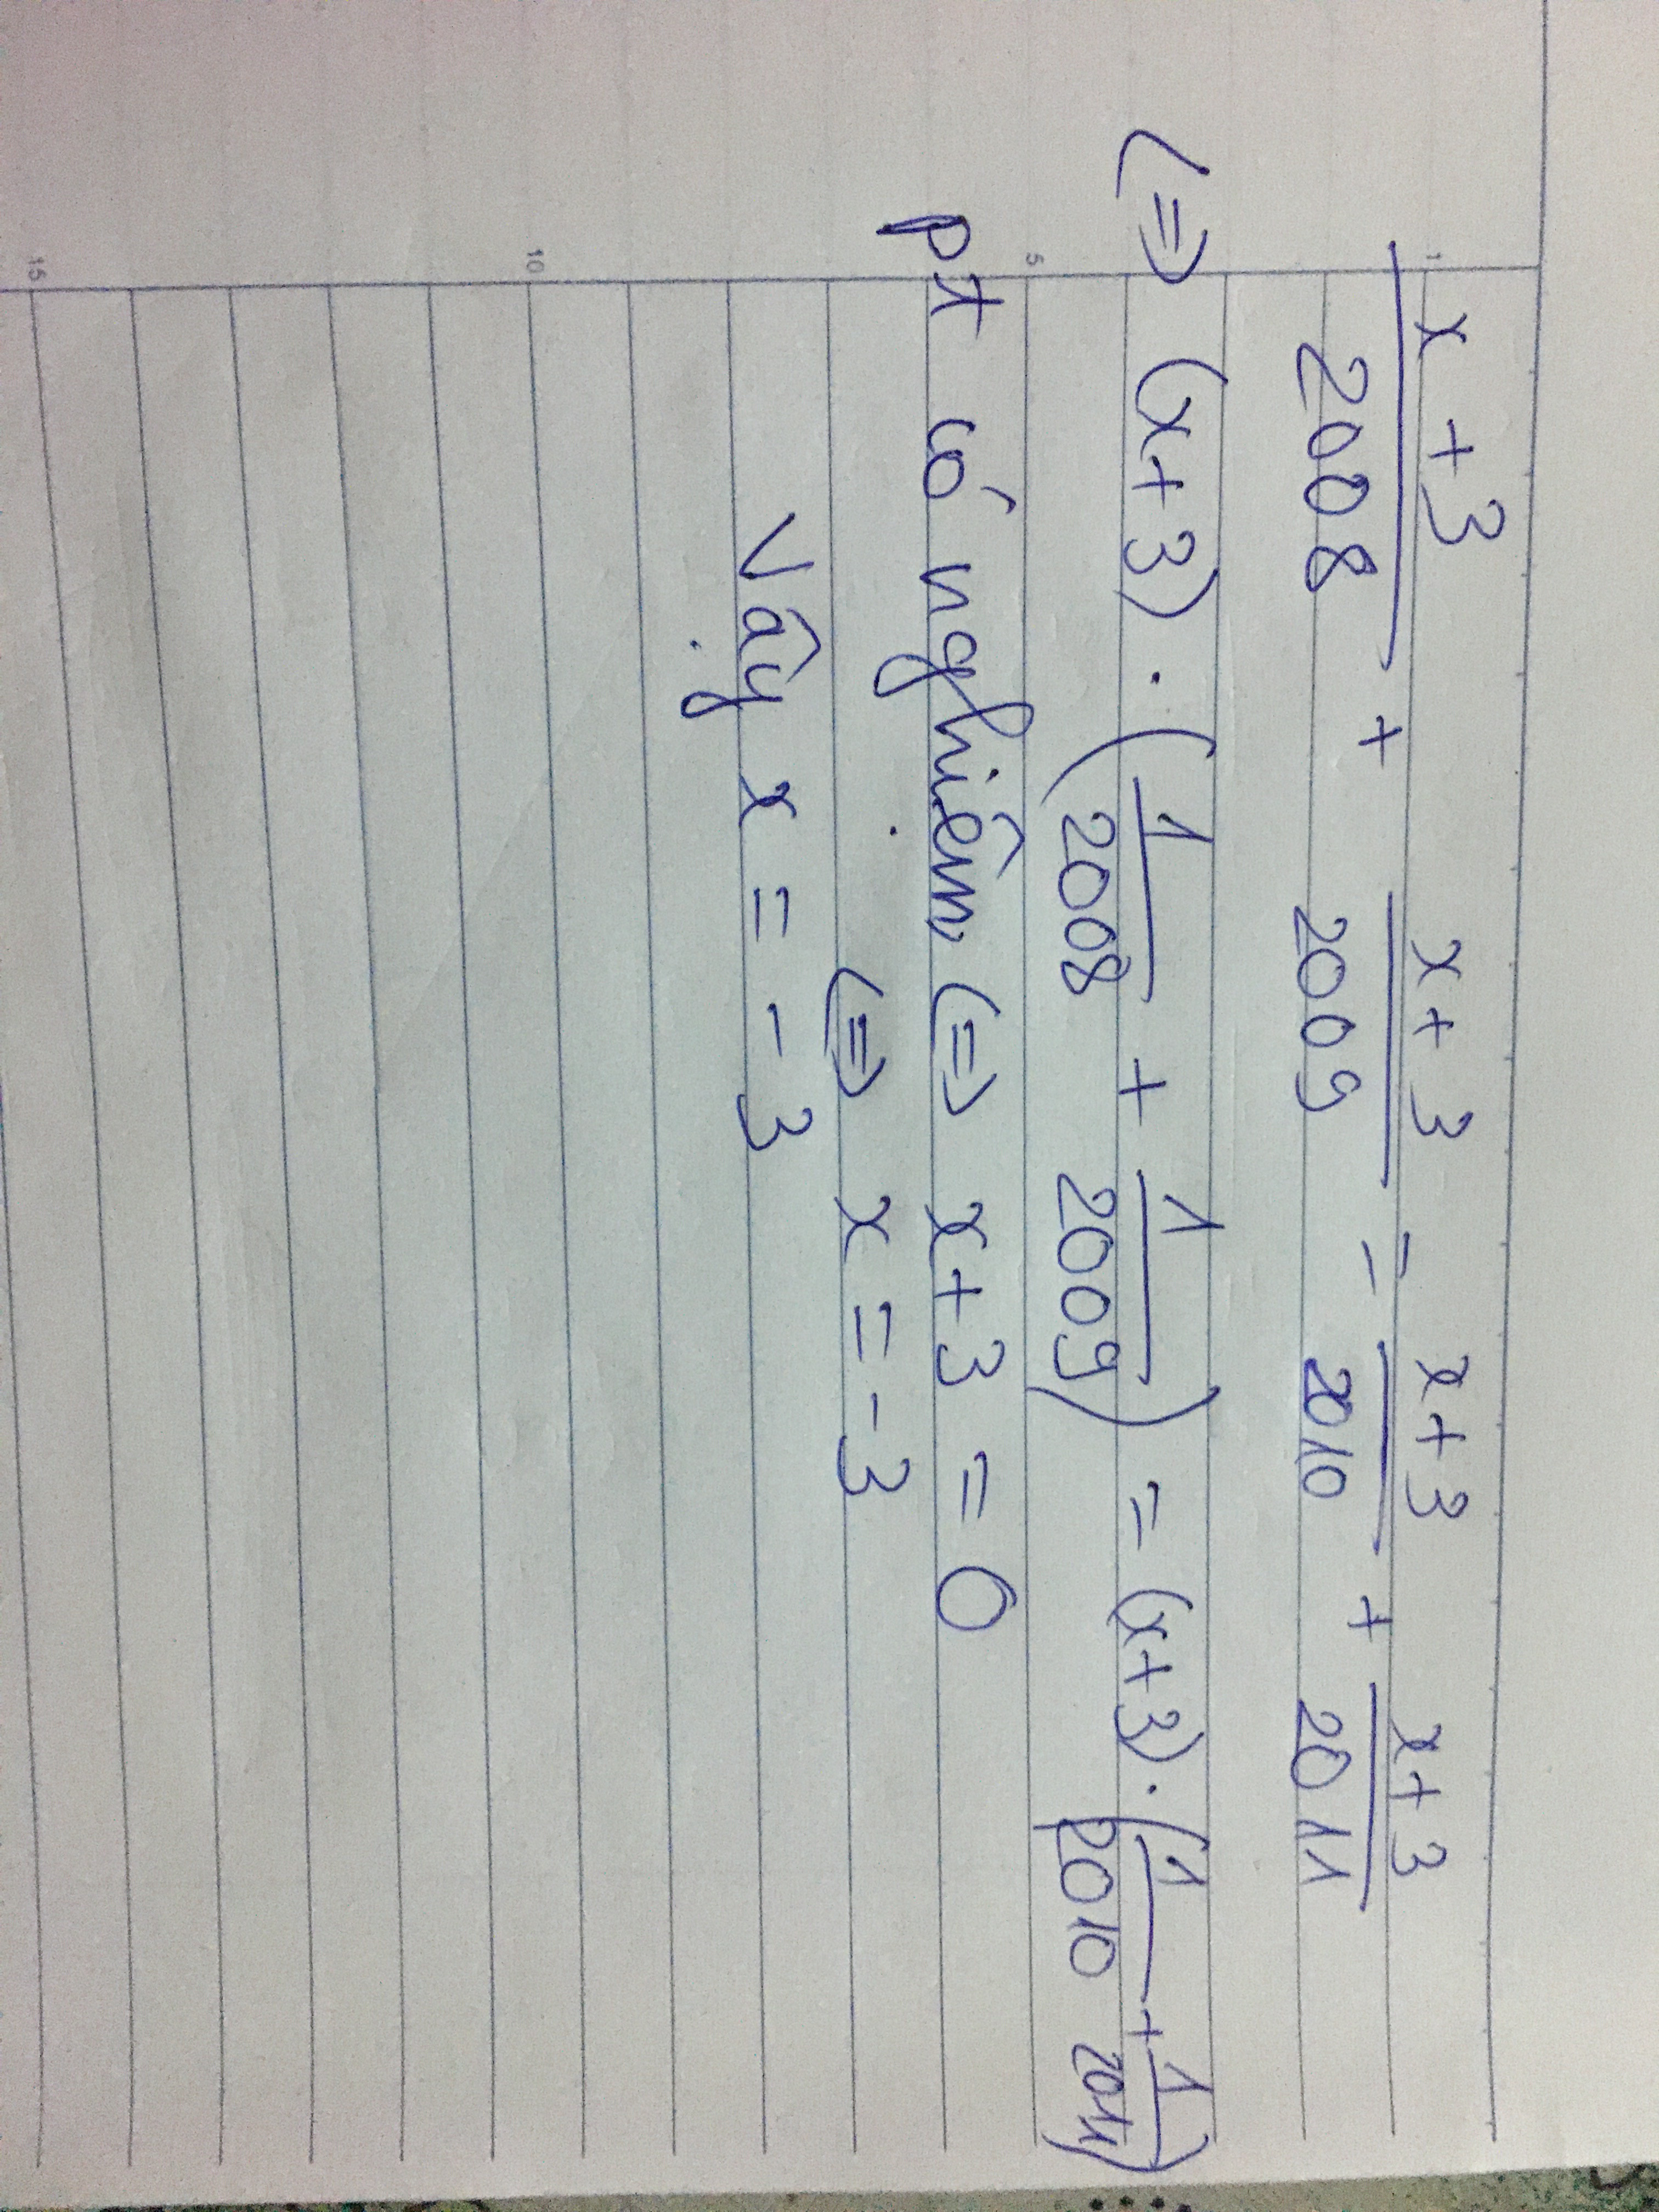 x + 3 / 2008 + x + 3 / 2009 = x + 3 / 2010 + x + 3 / 2011
<=> (x+3) . (1/2008 + 1/2009) = (x+3) . (1/2010 + 1/2011)
pt có nghiệm <=> x+3 = 0
<=> x = -3
Vậy x = -3
1
5
10
15